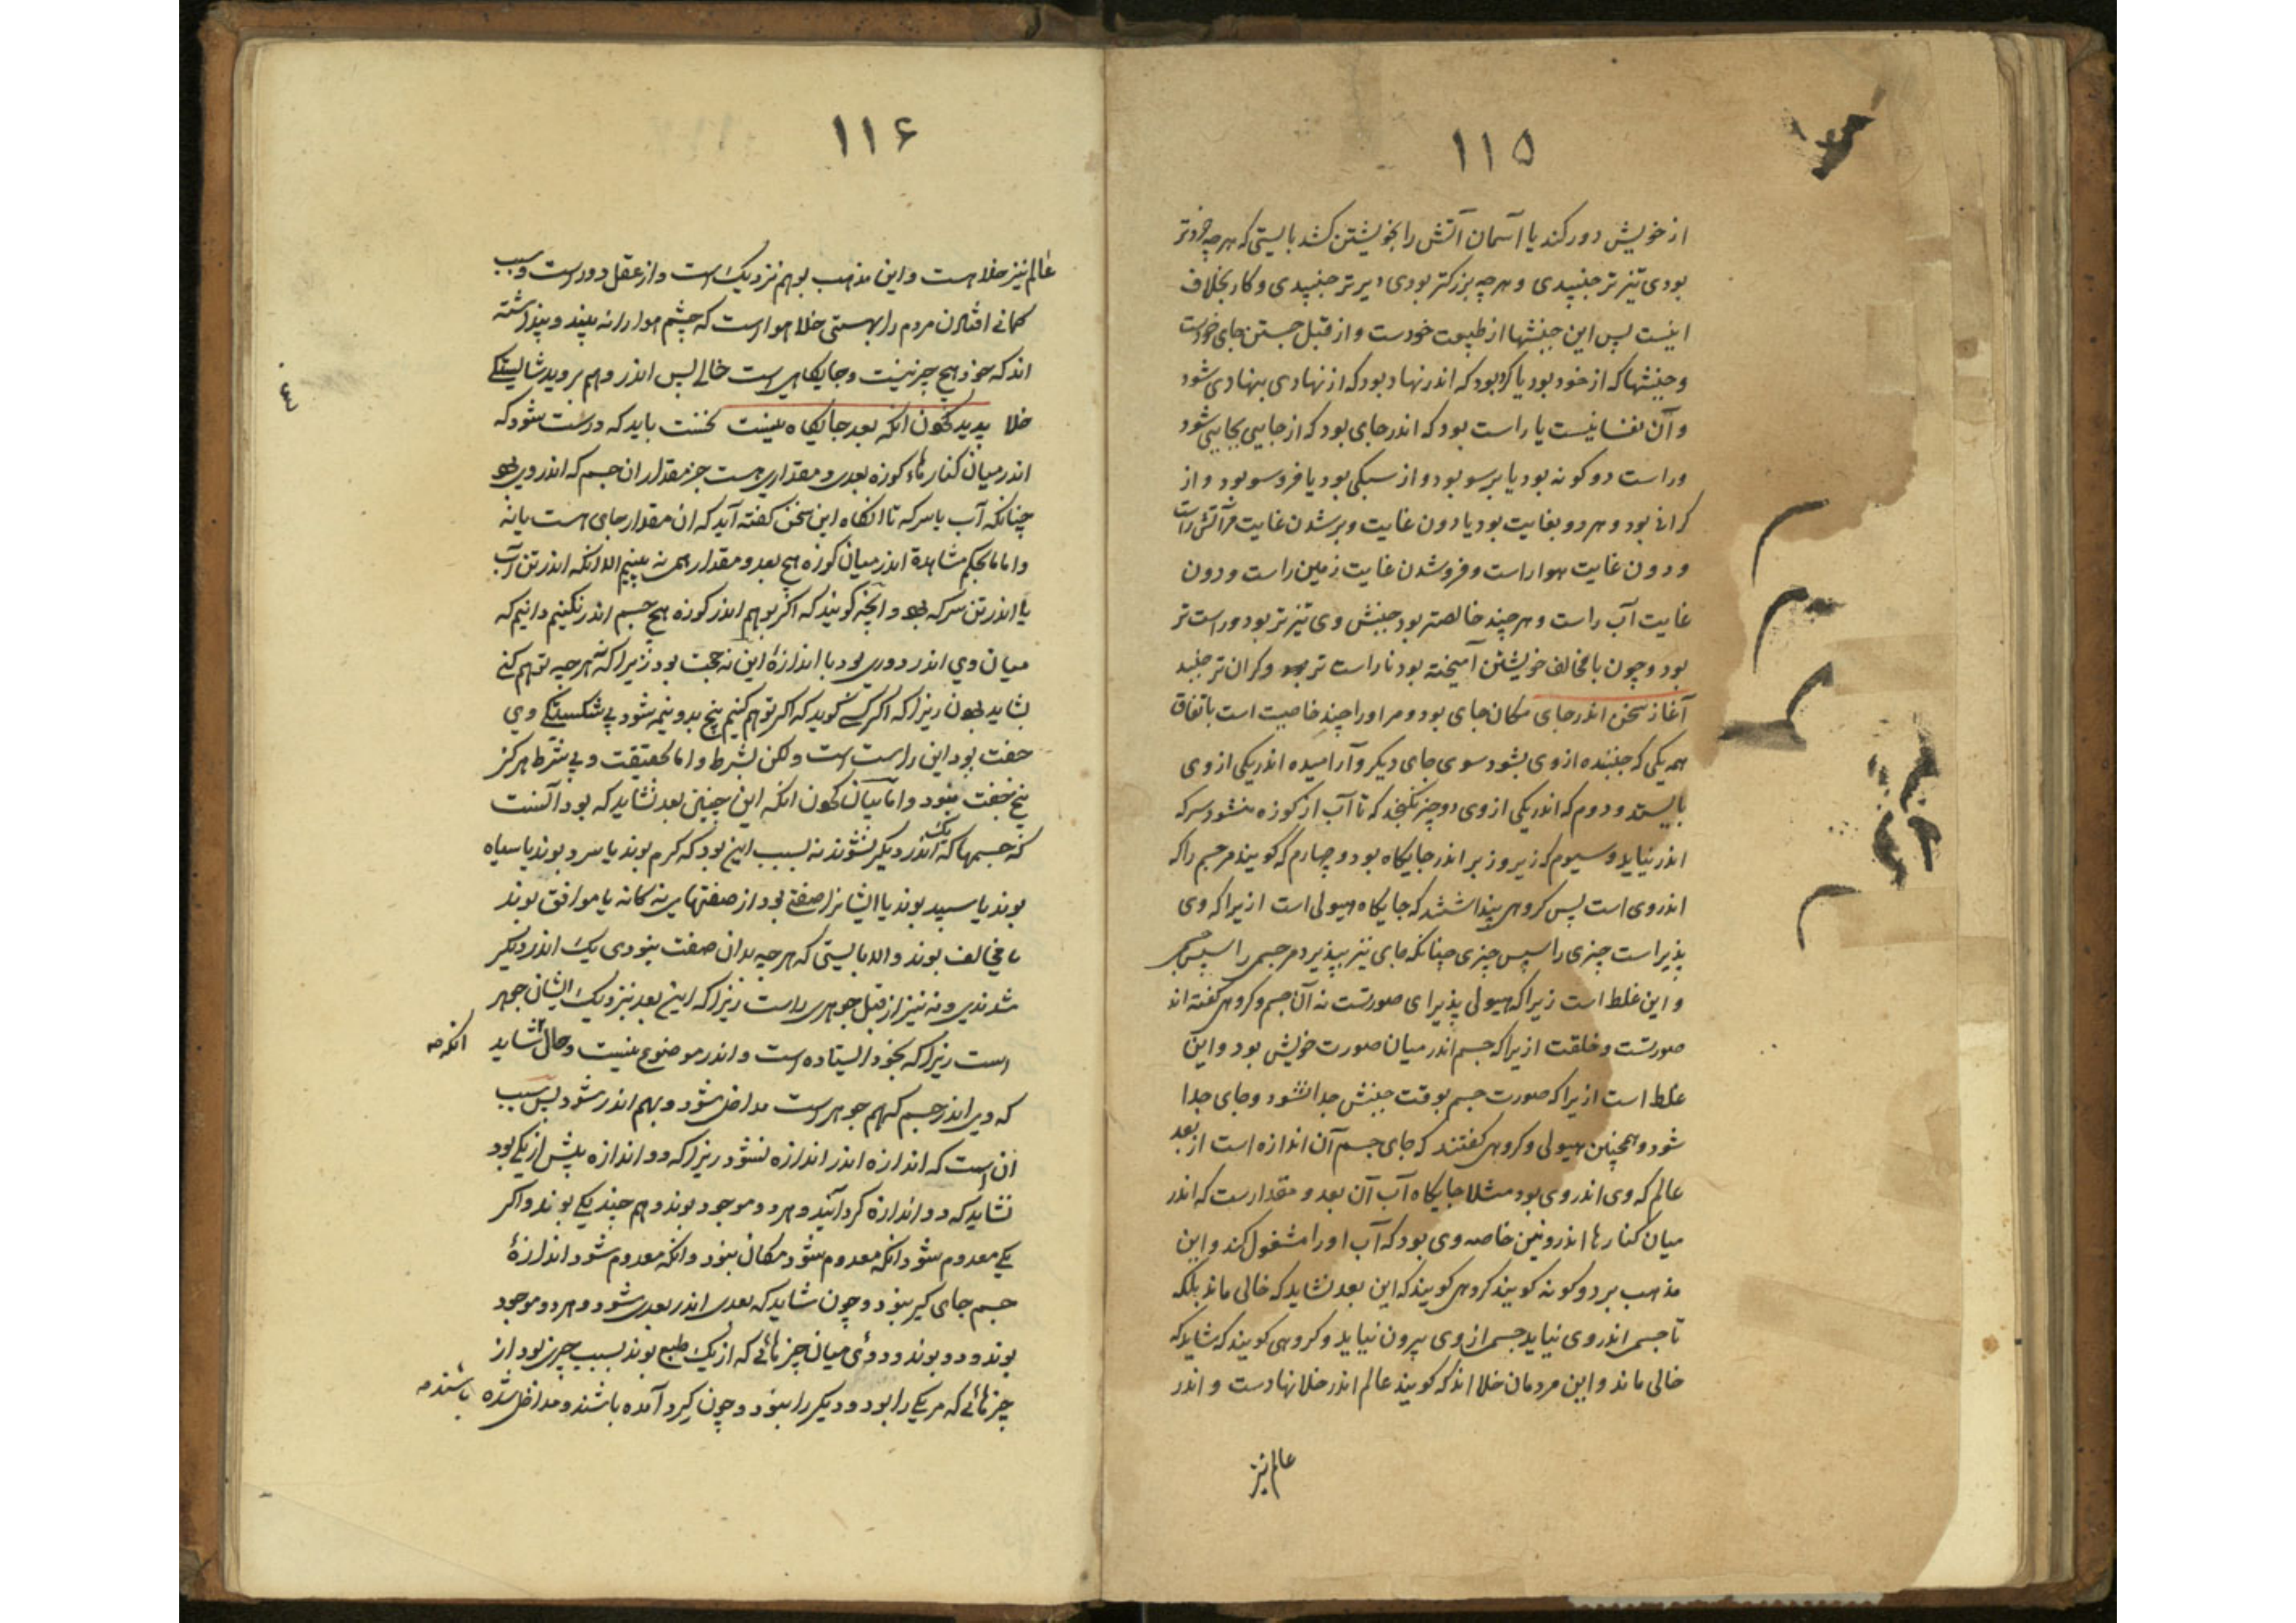 ۱۱۵
از خویش دور کند یا آسمان آتش را بخویشتن کشد بایستی که هرچه خردتر
بودی تیزتر جنبیدی و هرچه بزرکتر بودی دیرتر جنبیدی و کار بخلاف
اینست پس این جنبشها از طبیعت خودست و از قبل جستن جای خودست
و جنبشها که از خود بود یا کرد بود که اندر نهاد بود که از نهادی بنهادی شود
و آن نفسانیست یا راست بود که اندر جای بود که از جایی بجایی شود
و راست دو کونه بود یا برسو بود و از سبکی بود یا فروسو بود و از
کرانی بود و هر دو بغایت بود یا دون غایت و برشدن غایت مر آتش راست
و دون غایت هوا راست و فروشدن غایت زمین راست و دون
غایت آب راست و هر چند خالصتر بود جنبش وی تیزتر بود و راست تر
بود و چون با مخالف خویشتن آمیخته بود ناراست تر بود و کران تر جنبد
آغاز سخن اندر جای مکان جای بود و مر او را چند خاصیت است باتفاق
همه یکی که جنبنده از وی بشود سوی جای دیکر و آرامیده اندر یکی از وی
بایستد و دوم که اندر یکی از وی دو چیز نکنجد که تا آب از کوزه نشود سرکه
اندر نیاید و سیوم که زیر و زبر اندر جایکاه بود و چهارم که کویند مر جسم را که
اندر وی است پس کروهی پنداشتند که جایکاه هیولی است ازیرا که وی
پذیراست چیزی را سپس چیزی چنانکه جای نیز بپذیرد مر جسمی را سپس جسمی
و این غلط است زیرا که هیولی پذیرای صورتست نه آن جسم و کروهی کفته اند
صورتست و خلقت ازیرا که جسم اندر میان صورت خویش بود و این
غلط است ازیرا که صورت جسم بوقت جنبش جدا نشود و جای جدا
شود و همچنین هیولی و کروهی کفتند که جای جسم آن اندازه است از بعد
عالم که وی اندر وی بود مثلا جایکاه آب آن بعد و مقدارست که اندر
میان کنارها اندرونین خاصه وی بود که آب او را مشغول کند و این
مذهب بر دو کونه کویند کروهی کویند که این بعد نشاید که خالی ماند بلکه
تا جسمی اندر وی نیاید جسمی از وی بیرون نیاید و کروهی کویند که شاید که
خالی ماند و این مردمان خلا اند که کویند عالم اندر خلا نهادست و اندر
عالم نیز
۱۱۶
عالم نیز خلا هست و این مذهب بوهم نزدیک است و از عقل دورست و سبب
کمانی افتادن مردم را بهستی خلا هوا است که چشم هوا را نه بیند و پنداشته
اند که خود هیچ چیز نیست و جایکاهی است خالی پس اندر وهم بروید شایستکی
خلا پدید کردن آنکه بعد جایکاه نیست نخست باید که درست شود که
اندر میان کنارهاء کوزه بعدی و مقداری هست جز مقدار ان جسم که اندر وی بود
چنانکه آب یا سرکه تا آنکاه این سخن کفته آید که ان مقدار جای هست یا نه
و اما ما بحکم مشاهدة اندر میان کوزه هیچ بعد و مقدار همی نه بینیم الا انکه اندر تن آب
یا اندر تن سرکه بود و آنچه کویند که اکر بوهم اندر کوزه هیچ جسم اندر نکنیم دانیم که
میان وی اندر دوری بود با اندازهٔ این نه حجت بود زیرا که نه هرچه توهم کنی
بشاید بودن زیرا که اکر کسی کوید که اکر توهم کنیم پنج بدو نیمه شود بی شکستکی وی
جفت بود این راست است ولکن بشرط و اما بحقیقت و بی شرط هرکز
پنج جفت نبود و اما بیان کردن انکه این چنین بعد نشاید که بود آنست
که جسمها که یک اندر دیکر نشوند نه بسبب این بود که کرم بوند یا سرد بوند یا سیاه
بوند یا سپید بوند یا ایشانرا صفتی بود از صفتهای نه کانه یا موافق بوند
یا مخالف بوند والا بایستی که هرچه بدان صفت نبودی یک اندر دیکر
شدندی و نه نیز از قبل جوهری راست زیرا که این بعد نیز نزدیک ایشان جوهر
است زیرا که بخود ایستاده است و اندر موضوع نیست و حال نشاید انکه صه
که وی اندر جسم کهم جوهر است مداخل شود و بهم اندر شود پس سبب
ان است که اندازه اندر اندازه نشود زیرا که دو اندازه بیش از یکی بود
نشاید که دو اندازه کرد آیند و هر دو موجود بوند و هم چند یکی بوند و اکر
یکی معدوم شود انکه معدوم شود مکان نبود و انکه معدوم شود اندازهٔ
جسم جای کیر نبود و چون شاید که بعدی اندر بعدی شود و هر دو موجود
بوند و دو بوند و دوئی میان چیزهائی که از یک طبع بوند بسبب چیزی بود از
چیزهائی که مر یکی را بود و دیکر را نبود و چون کرد آمده باشند و مداخل شده باشند صه